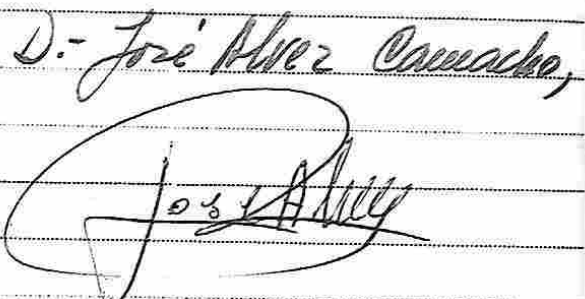 D.- José Alvez Camacho,
José Alvez